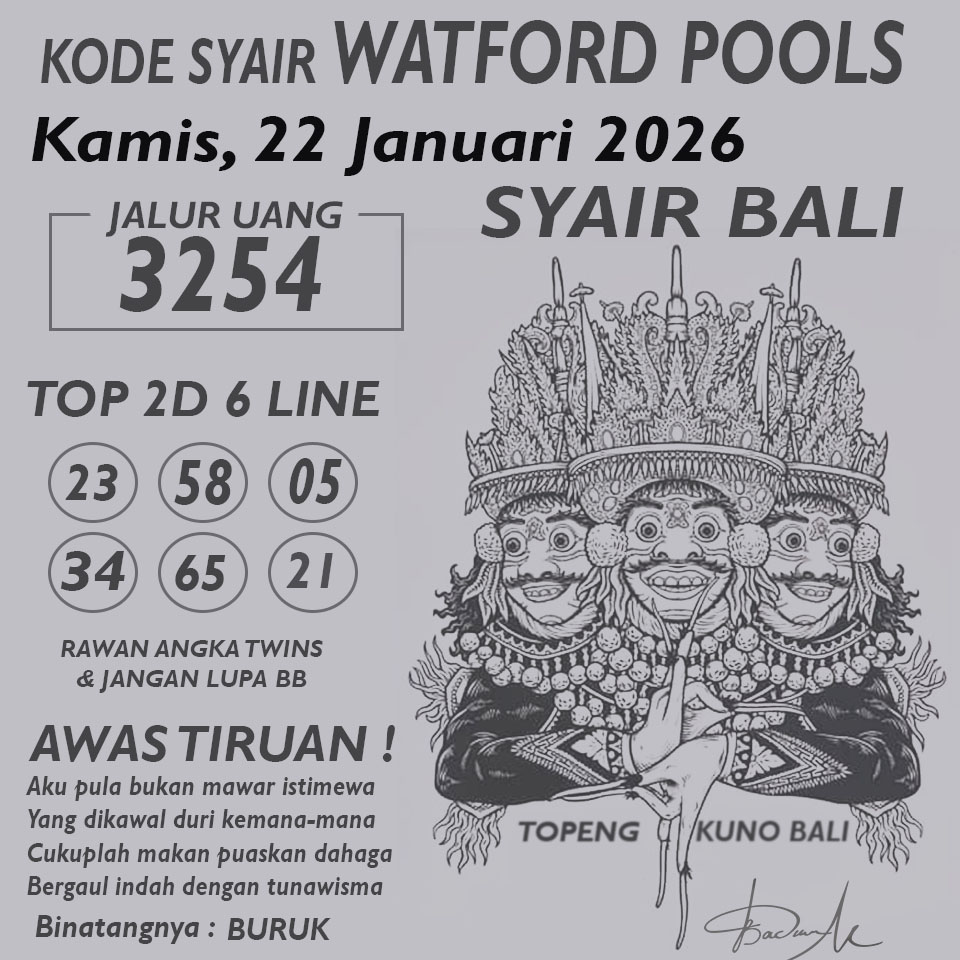 KODE SYAIR WATFORD POOLS
Kamis, 22 Januari 2026
SYAIR BALI
JALUR UANG
3254
TOP 2D 6 LINE
23 58 05
34 65 21
RAWAN ANGKA TWINS
& JANGAN LUPA BB
AWAS TIRUAN !
Aku pula bukan mawar istimewa
Yang dikawal duri kemana-mana
Cukuplah makan puaskan dahaga
Bergaul indah dengan tunawisma
Binatangnya : BURUK
TOPENG KUNO BALI